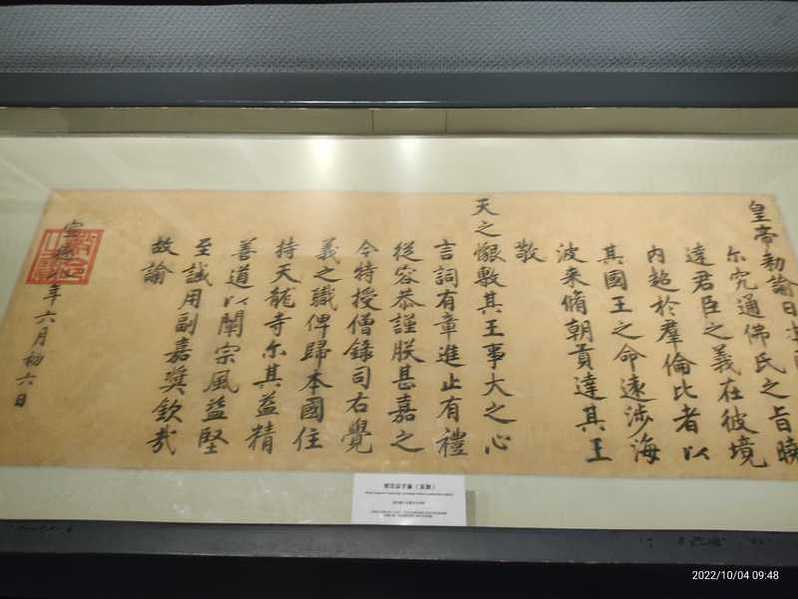 皇帝勅諭日
尔究通佛氏之旨曉
達君臣之義在彼境
内超於羣倫比者以
其國王之命遠涉海
波来脩朝貢達其王
敬
天之懇敷其王事大之心
言詞有章進止有禮
從容恭謹朕甚嘉之
今特授僧錄司右覺
義之職俾歸本國住
持天龍寺尔其益精
善道以闡宗風益堅
至誠用副嘉奬欽哉
故諭
宣德八年六月初六日
2022/10/04 09:48